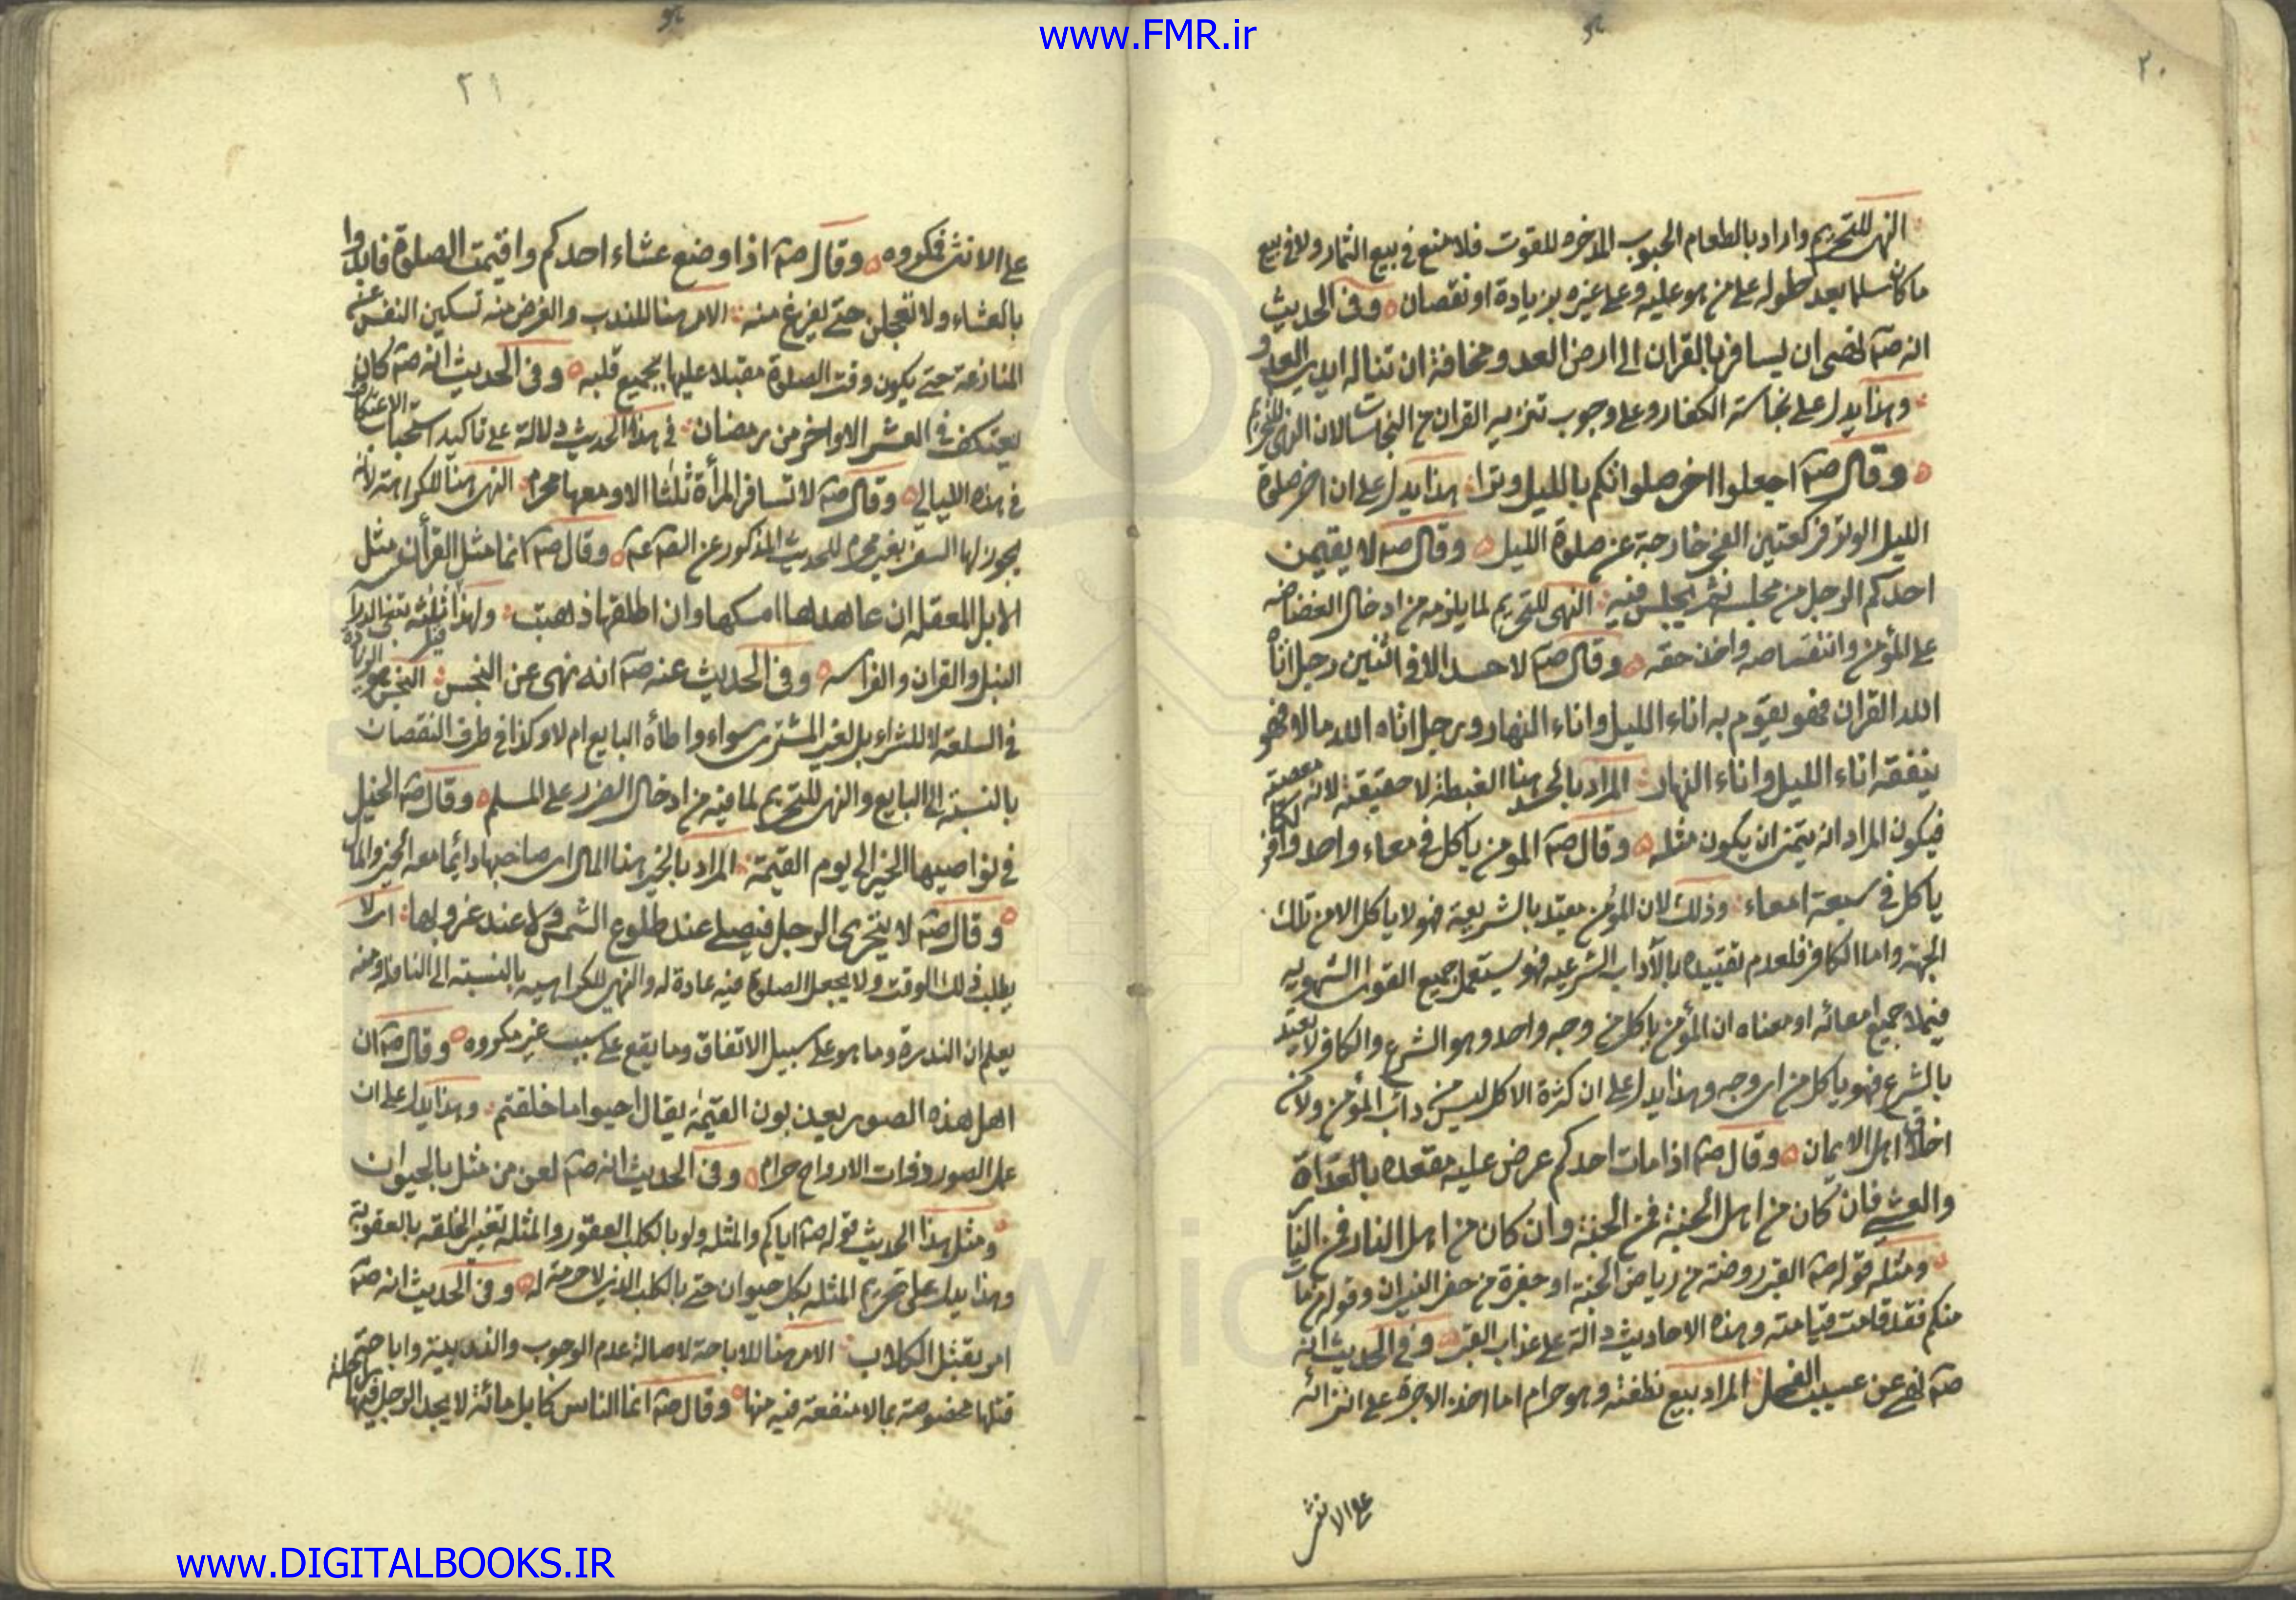 www.FMR.ir
٢٠
النهى للتحريم واراد بالطعام الحبوب المدخره للقوت فلا منع فى بيع الثمار ولا فى بيع
ما كان سلما بعد حلوله على من هو عليه وعلى غيره بزيادة او نقصان وفى الحديث
انه صم نهى ان يسافر بالقران الى ارض العدو مخافة ان تناله ايدى العدو
وهذا يدل على نجاسة الكفار وعلى وجوب تنزيه القران من النجاسات لان النهى للتحريم
وقال صم اجعلوا اخر صلواتكم بالليل وترا هذا يدل على ان اخر صلوة
الليل الوتر فركعتين الفجر خارجة عن صلوة الليل وقال صم لا يقيمن
احدكم الرجل من مجلسه ثم يجلس فيه النهى للتحريم لما يلزمه من ادخال الغضاضه
على المؤمن وانتقاصه واخذ حقه وقال صم لا حسد الا فى اثنين رجل اتاه
الله القران فهو يقوم به اناء الليل واناء النهار ورجل اتاه الله مالا فهو
ينفقه اناء الليل واناء النهار المراد بالحسد هنا الغبطة لا حقيقته لانه معصية
فيكون المراد انه يتمنى ان يكون مثله وقال صم المومن ياكل فى معاء واحد والكافر
ياكل فى سبعة امعاء وذلك لان المؤمن مقيد بالشريعة فهو لا ياكل الا من تلك
الجهة واما الكافر فلعدم تقييده بالآداب الشرعيه فهو يستعمل جميع القوى الشهويه
فيملا جميع امعائه او معناه ان المؤمن ياكل من وجه واحد وهو الشرع والكافر لا يقيد
بالشرع فهو ياكل من اى وجه وهذا يدل على ان كثرة الاكل ليس من داب المؤمن ولا من
اخلاق اهل الايمان وقال صم اذا مات احدكم عرض عليه مقعده بالغداة
والعشى فان كان من اهل الجنة فمن الجنة وان كان من اهل النار فمن النار
ومثله قوله صم القبر روضة من رياض الجنة او حفرة من حفر النيران وقوله من مات
منكم فقد قامت قيامته وهذه الاحاديث دالة على عذاب القبر وفى الحديث انه
صم نهى عن عسيب الفحل المراد بيع نطفته وهو حرام اما اخذ الاجرة على انزائه
على الانثى
٢١
على الانثى فمكروه وقال صم اذا وضع عشاء احدكم واقيمت الصلوة فابدوا
بالعشاء ولا تعجلن حتى يفرغ منه الامر هنا للندب والغرض منه تسكين النفس عن
المنازعة حتى يكون وقت الصلوة مقبلا عليها بجميع قلبه وفى الحديث انه صم كان
يعتكف فى العشر الاواخر من رمضان فى هذا الحديث دلالة على تاكيد استحباب الاعتكاف
فى هذه الليالى وقال صم لا تسافر المرأة ثلثا الا ومعها محرم النهى هنا للكراهة لانه
يجوز لها السفر بغير محرم للحديث المذكور عن الصم وقال صم انما مثل القرأن مثل
الابل المعقله ان عاهدها امسكها وان اطلقها ذهبت
النبل والقران والفراسه وفى الحديث عنه صم انه نهى عن النجس النجس هو الزيادة
فى السلعة لا للشراء بل لغير المشترى سواء واطأه البايع ام لا وكذا فى طرف النقصان
بالنسبة الى البايع والنهى للتحريم لما فيه من ادخال الضرر على المسلم وقال صم الخيل
فى نواصيها الخير الى يوم القيمة المراد بالخير هنا المال اى صاحبها دائما معه الخير والمال
وقال صم لا يتحرى الرجل فيصلى عند طلوع الشمس ولا عند غروبها اى لا
يطلب ذلك الوقت ولا يجعل الصلوة فيه عادة له والنهى للكراهيه بالنسبة الى النافلة ومنه
يعلم ان الندرة وما هو على سبيل الاتفاق وما يقع على سبب غير مكروه وقال صم ان
اهل هذه الصور يعذبون القيمة يقال احيوا ما خلقتم وهذا يدل على ان
عمل الصور ذوات الارواح حرام وفى الحديث انه صم لعن من مثل بالحيوان
ومثل هذا الحديث قوله صم اياكم والمثله ولو بالكلب العقور والمثله تغير الخلقه بالعقوبة
وهذا يدل على تحريم المثله بكل حيوان حتى بالكلب الذى لا حرمة له وفى الحديث انه صم
امر بقتل الكلاب الامر هنا للاباحة لاصالة عدم الوجوب والندبية واباحة
قتلها مخصوصة بما لا منفعة فيه منها وقال صم انما الناس كابل مائة لا يجد الرجل فيها راحلة
www.DIGITALBOOKS.IR